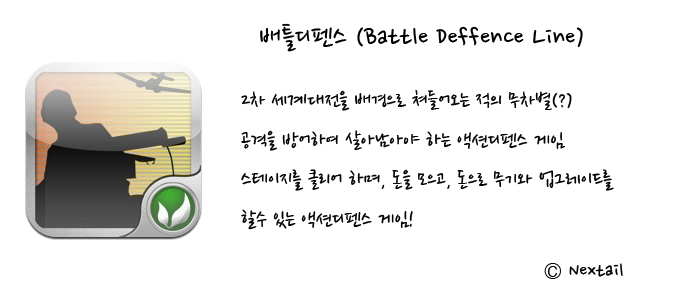 배틀디펜스 (Battle Deffence Line)
2차 세계대전을 배경으로 쳐들어오는 적의 무차별(?)
공격을 방어하여 살아남아야 하는 액션디펜스 게임
스테이지를 클리어 하며, 돈을 모으고, 돈으로 무기와 업그레이드를
할수 있는 액션디펜스 게임!
© Nextail